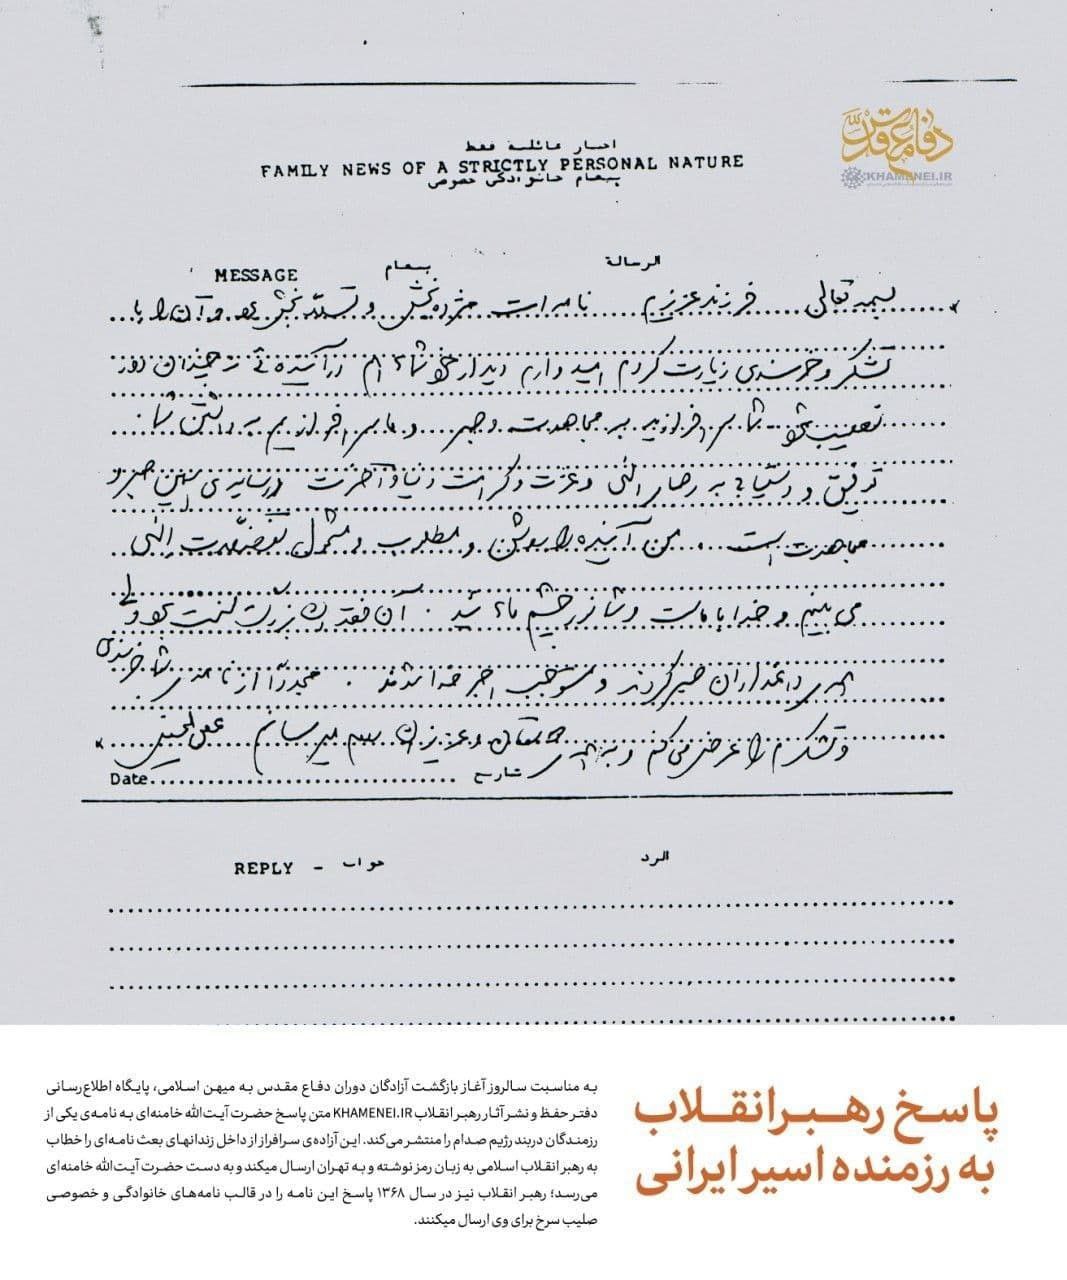 دفاع مقدس
KHAMENEI.IR
اخبار عائلية فقط
FAMILY NEWS OF A STRICTLY PERSONAL NATURE
پیغام خانوادگی خصوصی
MESSAGE پیغام الرسالة
بسمه تعالی فرزند عزیزم نامه‌ات مژده بخش و تسلا بخش بود و آن را با
تشکر و خرسندی زیارت کردم امیدوارم دیدار خود شما هم در آینده‌ئی نه چندان دور
نصیب شود شما سرافرازید به مجاهدت و صبر و ما سرافرازیم به داشتن شما
توفیق و دستیابی به رضای الهی و عزت و کرامت دنیا و آخرت در سایه‌ی همین صبر و
مجاهدت است من آینده را روشن و مطلوب و مشمول تفضلات الهی
می بینم و خدا با ماست و شما نور چشم مائید. آن فقدان بزرگ سخت بود ولی
همه‌ی داغداران صبر کردند و مستوجب اجر خدا شدند. مجدداً از نامه‌ی شما خرسندی
و تشکرم را عرض می کنم و به همه‌ی دوستان و عزیزان سلام میرسانم علی الحسینی
Date تاریخ
REPLY - جواب الرد
پاسخ رهبر انقلاب
به رزمنده اسیر ایرانی
به مناسبت سالروز آغاز بازگشت آزادگان دوران دفاع مقدس به میهن اسلامی، پایگاه اطلاع‌رسانی
دفتر حفظ و نشر آثار رهبر انقلاب KHAMENEI.IR متن پاسخ حضرت آیت‌الله خامنه‌ای به نامه‌ی یکی از
رزمندگان دربند رژیم صدام را منتشر می‌کند. این آزاده‌ی سرافراز از داخل زندانهای بعث نامه‌ای را خطاب
به رهبر انقلاب اسلامی به زبان رمز نوشته و به تهران ارسال میکند و به دست حضرت آیت‌الله خامنه‌ای
می‌رسد؛ رهبر انقلاب نیز در سال ۱۳۶۸ پاسخ این نامه را در قالب نامه‌های خانوادگی و خصوصی
صلیب سرخ برای وی ارسال میکنند.